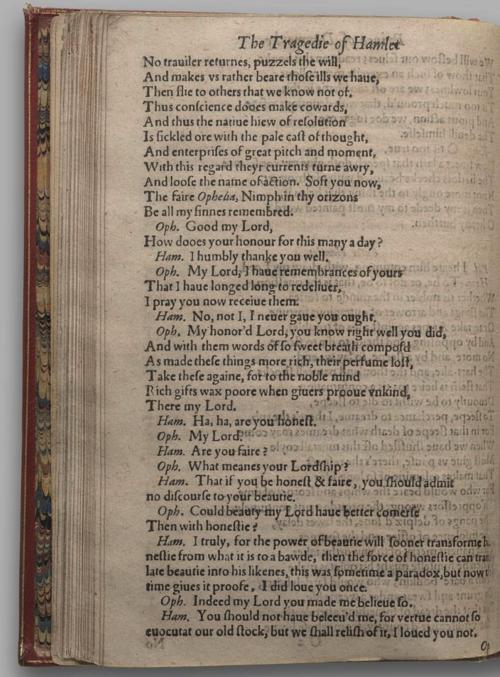 The Tragedie of Hamlet
No trauiler returnes, puzzels the will,
And makes vs rather beare those ills we haue,
Then flie to others that we know not of.
Thus conscience dooes make cowards,
And thus the natiue hiew of resolution
Is sickled ore with the pale cast of thought,
And enterprises of great pitch and moment,
With this regard theyr currents turne awry,
And loose the name of action. Soft you now,
The faire Ophelia, Nimph in thy orizons
Be all my sinnes remembred.
Oph. Good my Lord,
How dooes your honour for this many a day?
Ham. I humbly thanke you well.
Oph. My Lord, I haue remembrances of yours
That I haue longed long to redeliuer,
I pray you now receiue them.
Ham. No, not I, I neuer gaue you ought.
Oph. My honor'd Lord, you know right well you did,
And with them words of so sweet breath composd
As made these things more rich, their perfume lost,
Take these againe, for to the noble mind
Rich gifts wax poore when giuers prooue vnkind,
There my Lord.
Ham. Ha, ha, are you honest.
Oph. My Lord.
Ham. Are you faire?
Oph. What meanes your Lordship?
Ham. That if you be honest & faire, you should admit
no discourse to your beautie.
Oph. Could beauty my Lord haue better comerse
Then with honestie?
Ham. I truly, for the power of beautie will sooner transforme h
nestie from what it is to a bawde, then the force of honestie can tran
late beautie into his likenes, this was sometime a paradox, but now t
time giues it proofe, I did loue you once.
Oph. Indeed my Lord you made me belieue so.
Ham. You should not haue beleeu'd me, for vertue cannot so
euocutat our old stock, but we shall relish of it, I loued you not.